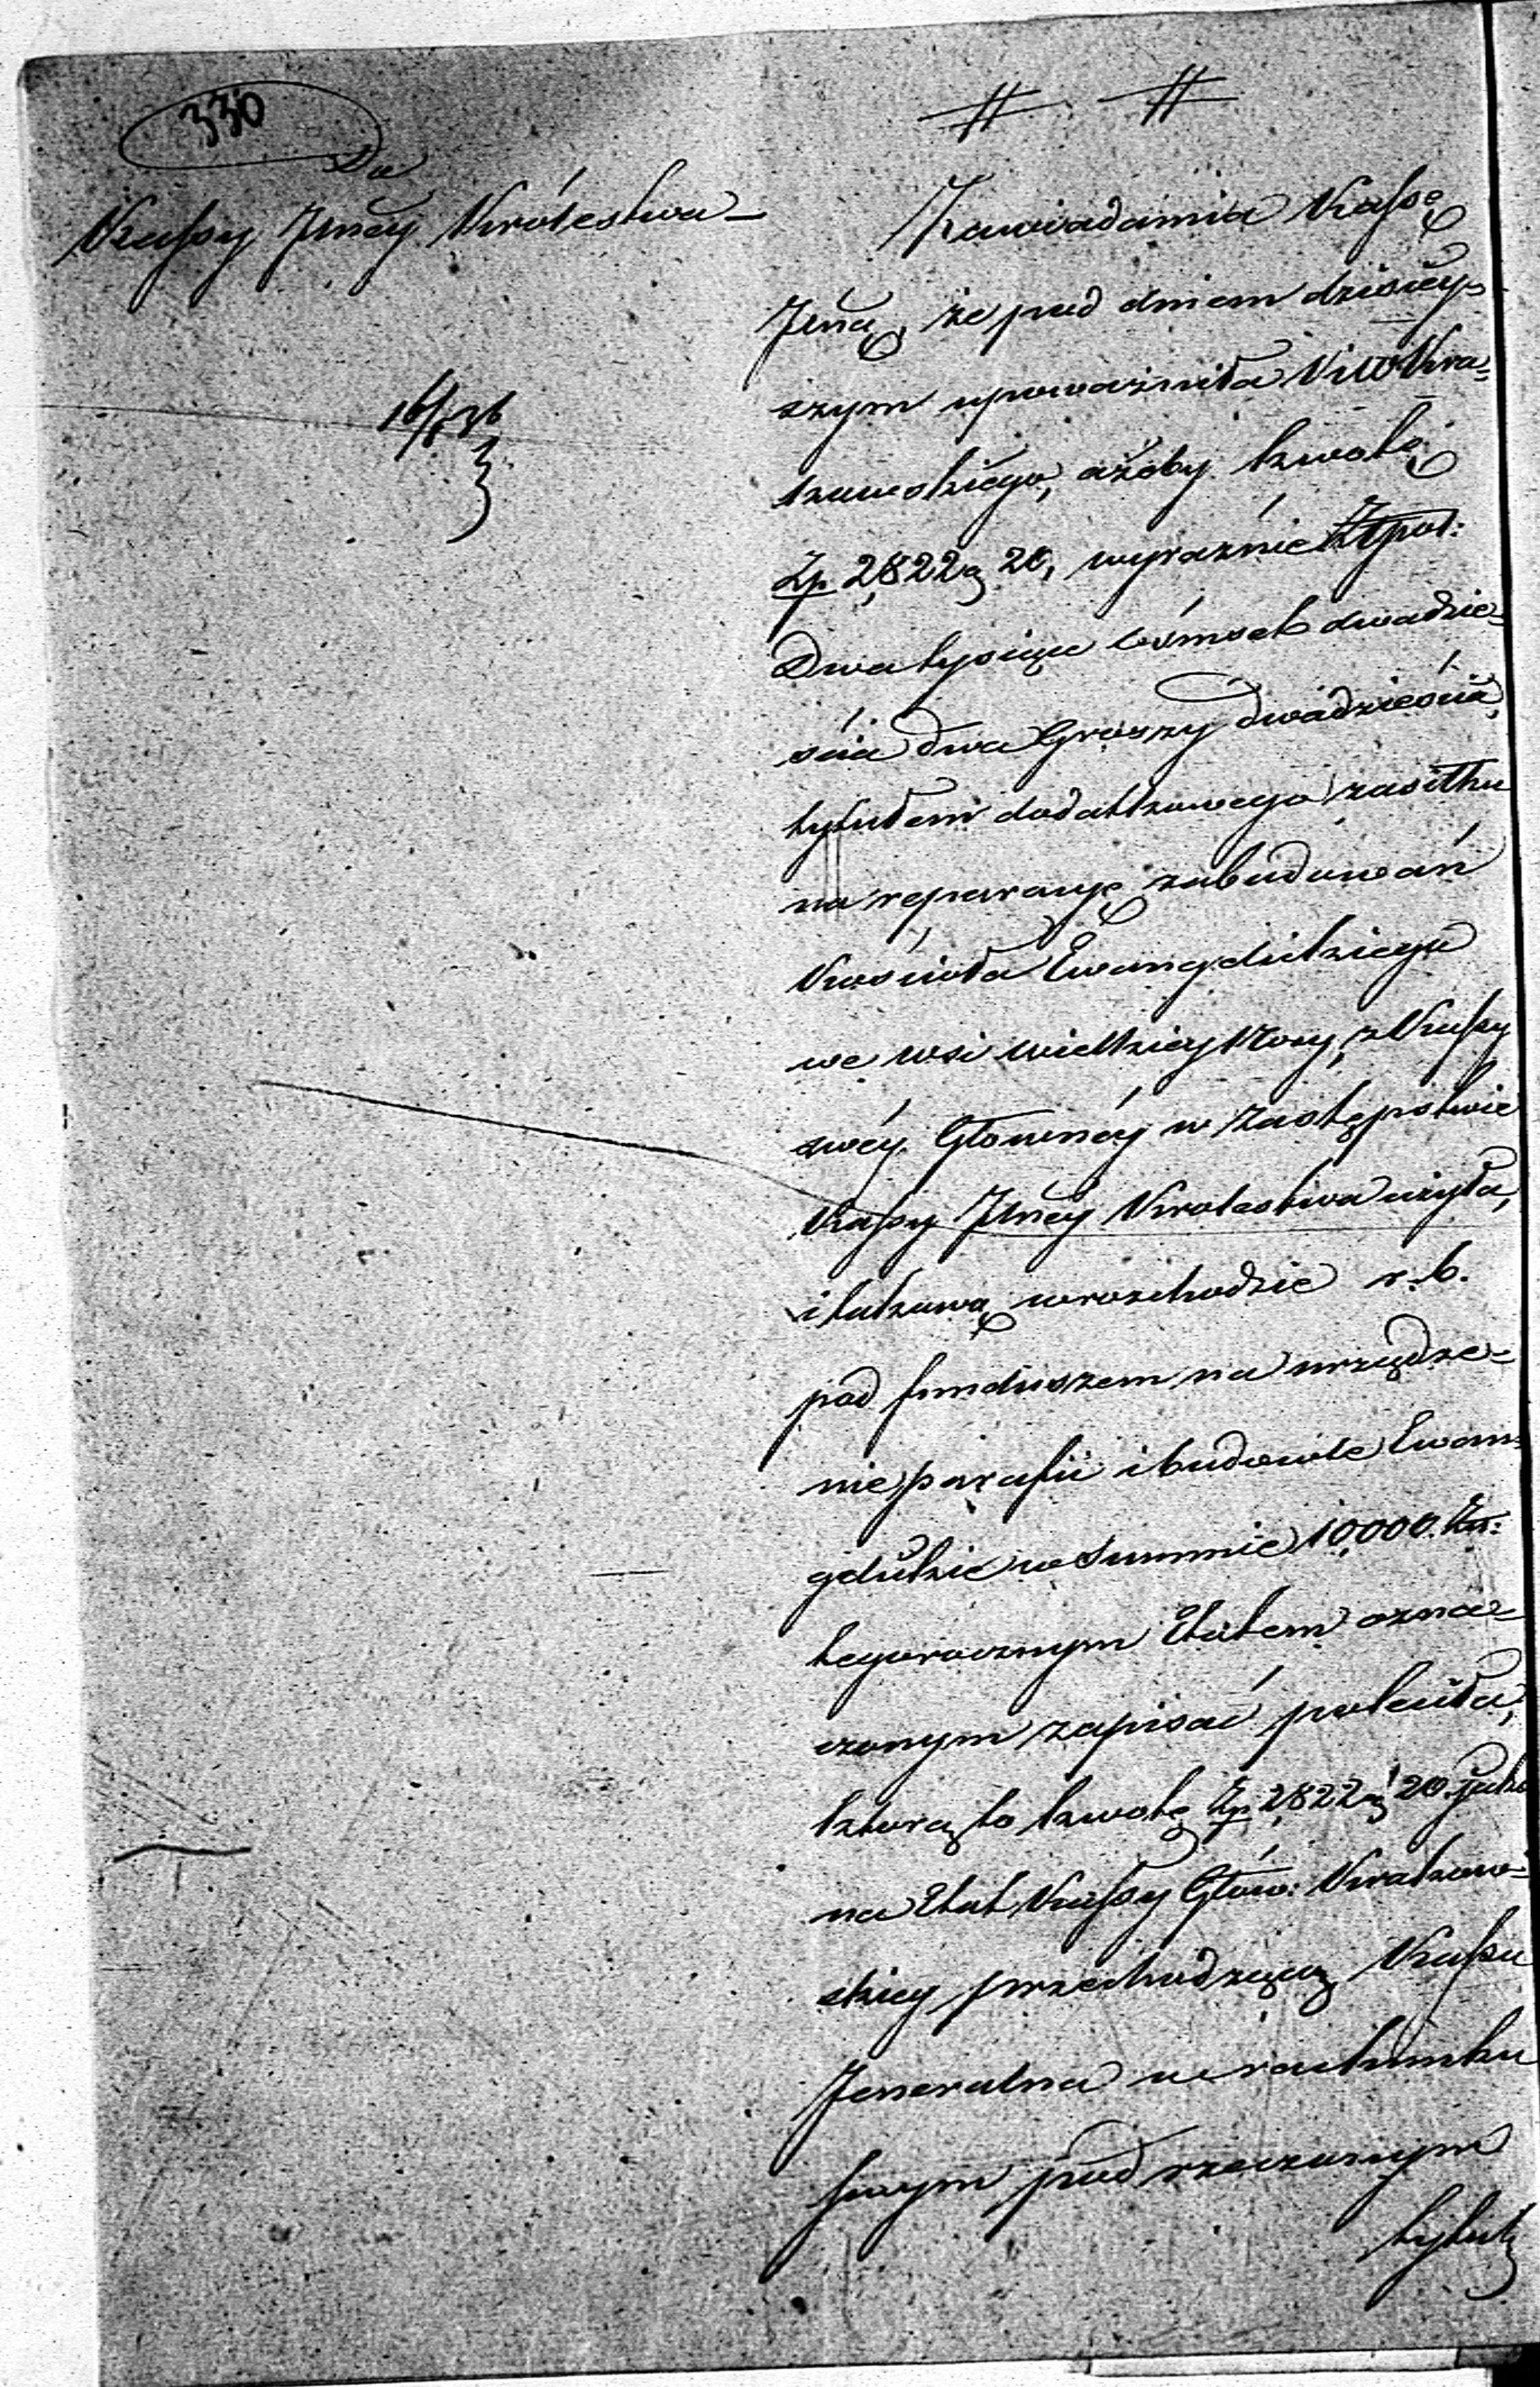 330
Do
Kassy Jlney Królestwa
16/5 36
Zawiadamia Kassę
Jlną, że pod dniem dzisiey-
szym upoważniła K. W. Kra-
kowskiego, ażeby kwotę
Zp 2,822 g 20, wyraźnie Złpol:
Dwa tysiące ośmset dwadzie-
ścia dwa Groszy dwadzieścia,
tytułem dodatkowego zasiłku
na reparacyę zabudowań
Kościoła Ewangelickiego
we wsi wielkiey, z Kassy
swéy Głównéy w zastępstwie
Kassy Jlnéy Królestwa użyła,
i takową w rozchodzie r. b.
pod funduszem na urządze-
nie parafii i budowle Ewan-
gelickie w Summie 10,000. Złp:
tegorocznym Etatem ozna-
czonym zapisać poleciła,
którą to kwotę Zp 2,822 g 20. jako
na Etat Kassy Głów: Krakow-
skiey przechodzącą Kassa
Jeneralna w rachunku
swym pod rzeczonym
tytuł